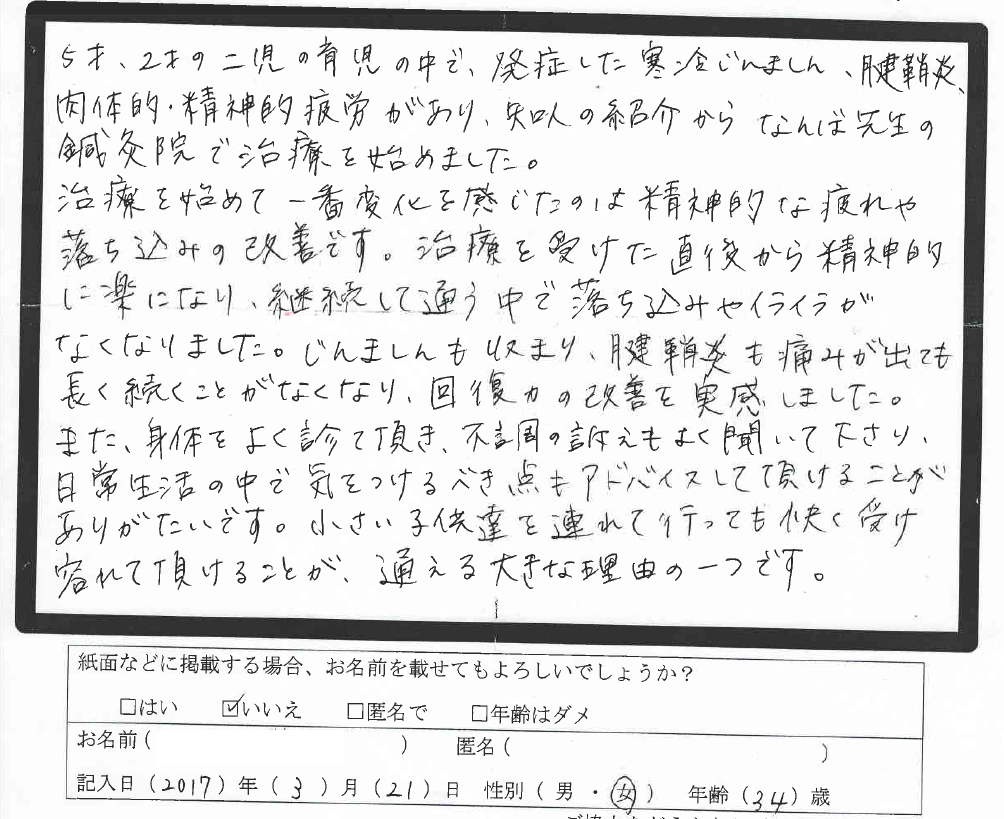 5才、2才の二児の育児の中で、発症した寒冷じんましん、腱鞘炎、
肉体的・精神的疲労があり、知人の紹介からなんば先生の
鍼灸院で治療を始めました。
治療を始めて一番変化を感じたのは精神的な疲れや
落ち込みの改善です。治療を受けた直後から精神的
に楽になり、継続して通う中で落ち込みやイライラが
なくなりました。じんましんも収まり、腱鞘炎も痛みが出ても
長く続くことがなくなり、回復力の改善を実感しました。
また、身体をよく診て頂き、不調の訴えもよく聞いて下さり、
日常生活の中で気をつけるべき点もアドバイスして頂けることが
ありがたいです。小さい子供達を連れて行っても快く受け
容れて頂けることが、通える大きな理由の一つです。
紙面などに掲載する場合、お名前を載せてもよろしいでしょうか?
□はい ☑いいえ □匿名で □年齢はダメ
お名前( ) 匿名( )
記入日(2017)年(3)月(21)日 性別(男・女) 年齢(34)歳